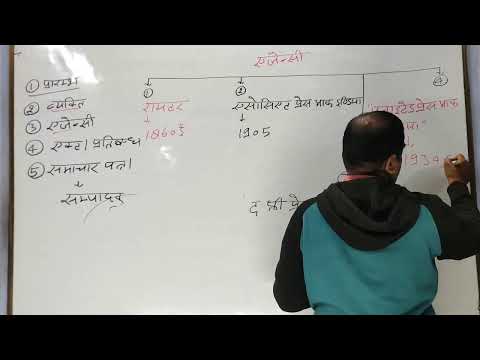 एजेन्सी
① प्रारम्भ
② व्यक्ति
③ एजेन्सी
④ एक्ट। प्रतिबन्ध
⑤ समाचार पत्र।
सम्पादक
①
रायटर
1860ई
②
एसोसिएट प्रेस ऑफ इण्डिया
1905
द फ्री प्रे
④
प्रेस ऑफ
193